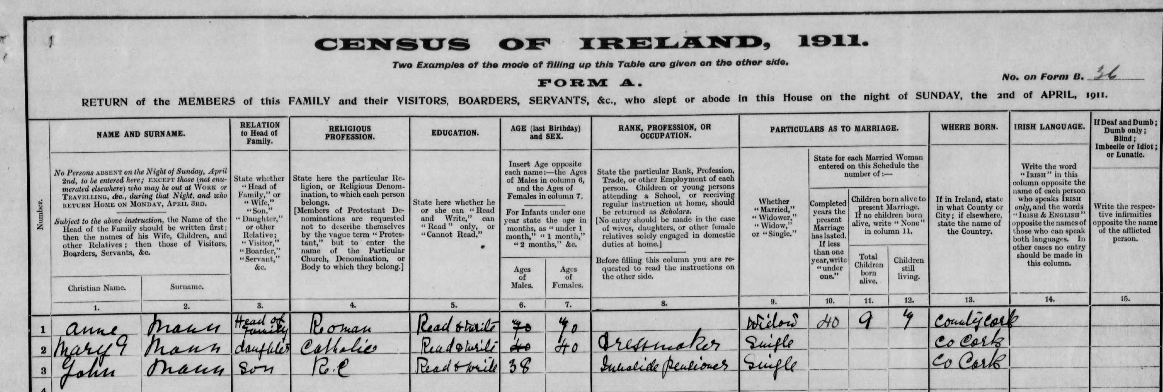 CENSUS OF IRELAND, 1911.
Two Examples of the mode of filling up this Table are given on the other side.
FORM A.
No. on Form B. 36
RETURN of the MEMBERS of this FAMILY and their VISITORS, BOARDERS, SERVANTS, &c., who slept or abode in this House on the night of SUNDAY, the 2nd of APRIL, 1911.
Number.
NAME AND SURNAME.
No Persons ABSENT on the Night of Sunday, April
2nd, to be entered here; EXCEPT those (not enu-
merated elsewhere) who may be out at WORK or
TRAVELLING, &c., during that Night, and who
RETURN HOME ON MONDAY, APRIL 3RD.
Subject to the above instruction, the Name of the
Head of the Family should be written first;
then the names of his Wife, Children, and
other Relatives; then those of Visitors,
Boarders, Servants, &c.
Christian Name.
Surname.
RELATION
to Head of
Family.
State whether
"Head of
Family," or
"Wife,"
"Son,"
"Daughter,"
or other
Relative;
"Visitor,"
"Boarder,"
"Servant,"
&c.
RELIGIOUS
PROFESSION.
State here the particular Re-
ligion, or Religious Denom-
ination, to which each person
belongs.
[Members of Protestant De-
nominations are requested
not to describe themselves
by the vague term "Protes-
tant," but to enter the
name of the Particular
Church, Denomination, or
Body to which they belong.]
EDUCATION.
State here whether he
or she can "Read
and Write," can
"Read" only, or
"Cannot Read."
AGE (last Birthday)
and SEX.
Insert Age opposite
each name:—the Ages
of Males in column 6,
and the Ages of
Females in column 7.
For Infants under one
year state the age in
months, as "under 1
month," "1 month,"
"2 months," &c.
Ages
of
Males.
Ages
of
Females.
RANK, PROFESSION, OR
OCCUPATION.
State the particular Rank, Profession,
Trade, or other Employment of each
person. Children or young persons
attending a School, or receiving
regular instruction at home, should
be returned as Scholars.
[No entry should be made in the case
of wives, daughters, or other female
relatives solely engaged in domestic
duties at home.]
Before filling this column you are re-
quested to read the instructions on
the other side.
PARTICULARS AS TO MARRIAGE.
Whether
"Married,"
"Widower,"
"Widow,"
or "Single."
State for each Married Woman
entered on this Schedule the
number of:—
Completed
years the
present
Marriage
has lasted.
If less
than one
year, write
"under
one."
Children born alive to
present Marriage.
If no children born
alive, write "None"
in column 11.
Total
Children
born
alive.
Children
still
living.
WHERE BORN.
If in Ireland, state
in what County or
City; if elsewhere,
state the name of
the Country.
IRISH LANGUAGE.
Write the word
"IRISH" in this
column opposite the
name of each person
who speaks IRISH
only, and the words
"IRISH & ENGLISH"
opposite the names of
those who can speak
both languages. In
other cases no entry
should be made in
this column.
If Deaf and Dumb;
Dumb only;
Blind;
Imbecile or Idiot;
or Lunatic.
Write the respec-
tive infirmities
opposite the name
of the afflicted
person.
1. 2. 3. 4. 5. 6. 7. 8. 9. 10. 11. 12. 13. 14. 15.
1 Anne Mann Head of Family Roman Read & write 70 70 Widow 40 9 7 County Cork
2 Mary Mann daughter Catholic Read & write 40 40 Dressmaker Single Co Cork
3 John Mann Son R.C Read & write 38 Invalide Pensioner Single Co Cork